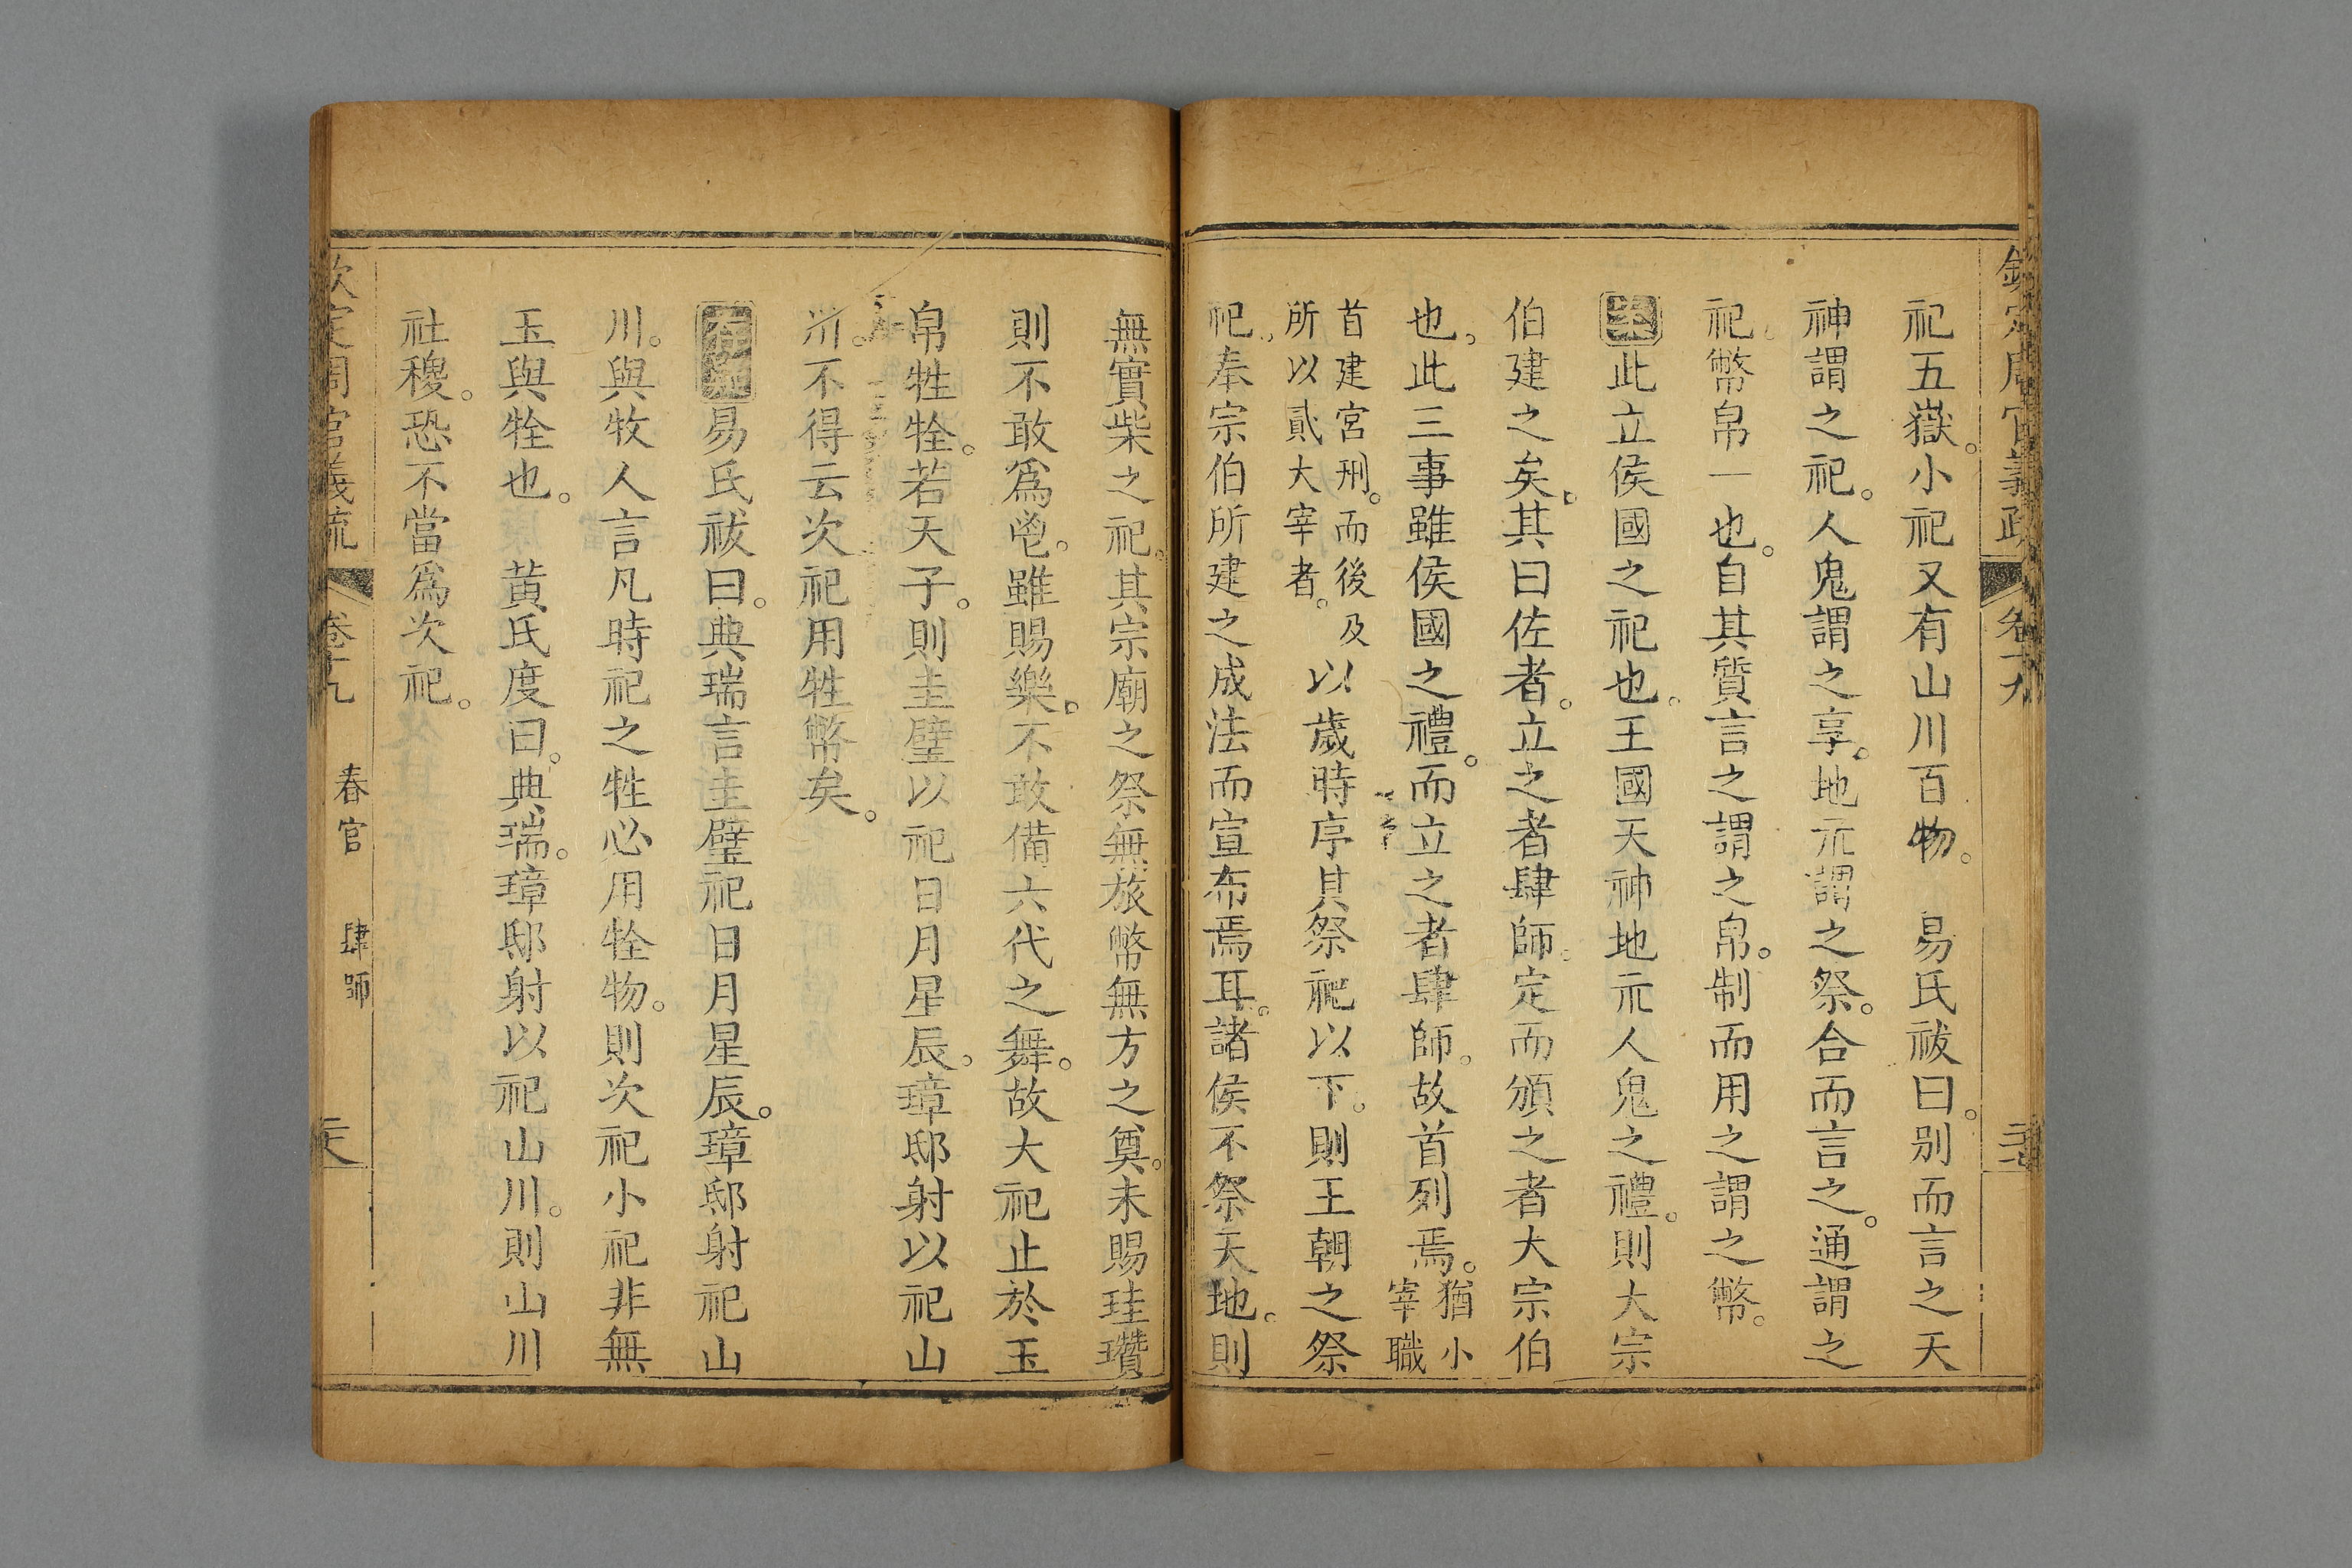 欽定周官義疏 卷十九
祀五嶽。小祀又有山川百物。 易氏祓曰。别而言之天
神謂之祀。人鬼謂之享。地示謂之祭。合而言之。通謂之
祀。幣帛一也。自其質言之謂之帛。制而用之謂之幣。
案此立侯國之祀也。王國天神地示人鬼之禮。則大宗
伯建之矣。其曰佐者。立之者肆師。定而頒之者大宗伯
也。此三事雖侯國之禮。而立之者肆師。故首列焉。猶小
宰職
首建宮刑。而後及
所以貳大宰者。以歲時序其祭祀以下。則王朝之祭
祀。奉宗伯所建之成法而宣布焉耳。諸侯不祭天地。則
無實柴之祀。其宗廟之祭無旅幣無方之奠。未賜珪瓚
則不敢爲鬯。雖賜樂。不敢備六代之舞。故大祀止於玉
帛牲牷。若天子。則圭璧以祀日月星辰。璋邸射以祀山
川。不得云次祀用牲幣矣。
存疑易氏祓曰。典瑞言圭璧祀日月星辰。璋邸射祀山
川。與牧人言凡時祀之牲必用牷物。則次祀小祀非無
玉與牷也。 黄氏度曰。典瑞。璋邸射以祀山川。則山川
社稷。恐不當爲次祀。
欽定周官義疏 卷十九 春官 肆師